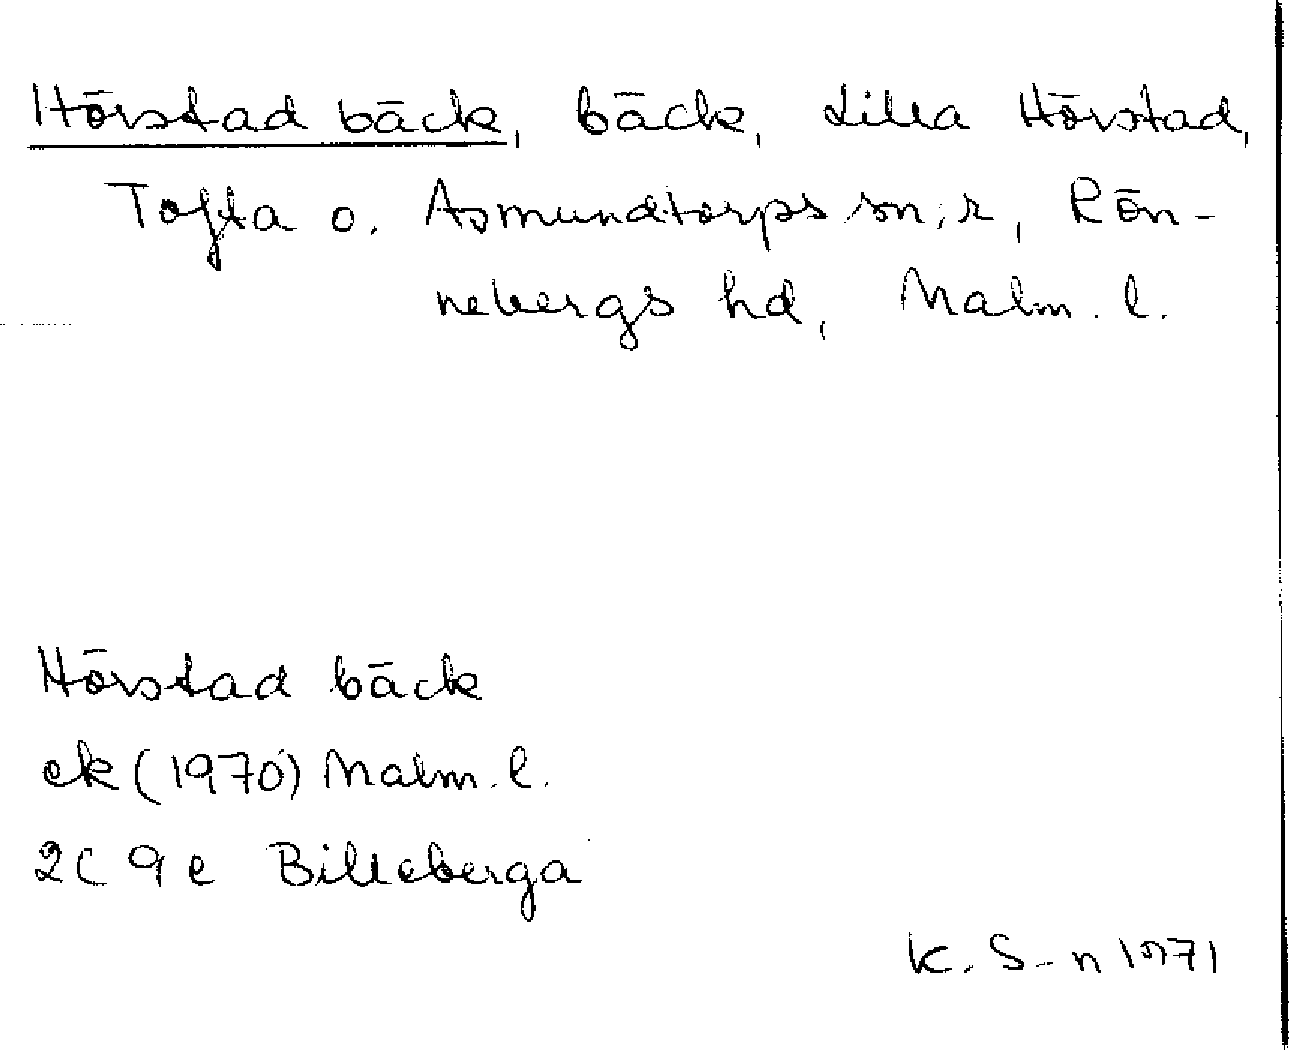 Hörstad bäck, bäck, Lilla Hörstad,
Tofta o. Asmundtorps sn:r, Rön-
nebergs hd, Malm. l.
Hörstad bäck
ek (1970) Malm. l.
2C 9e Billeberga
K. S-n 1971